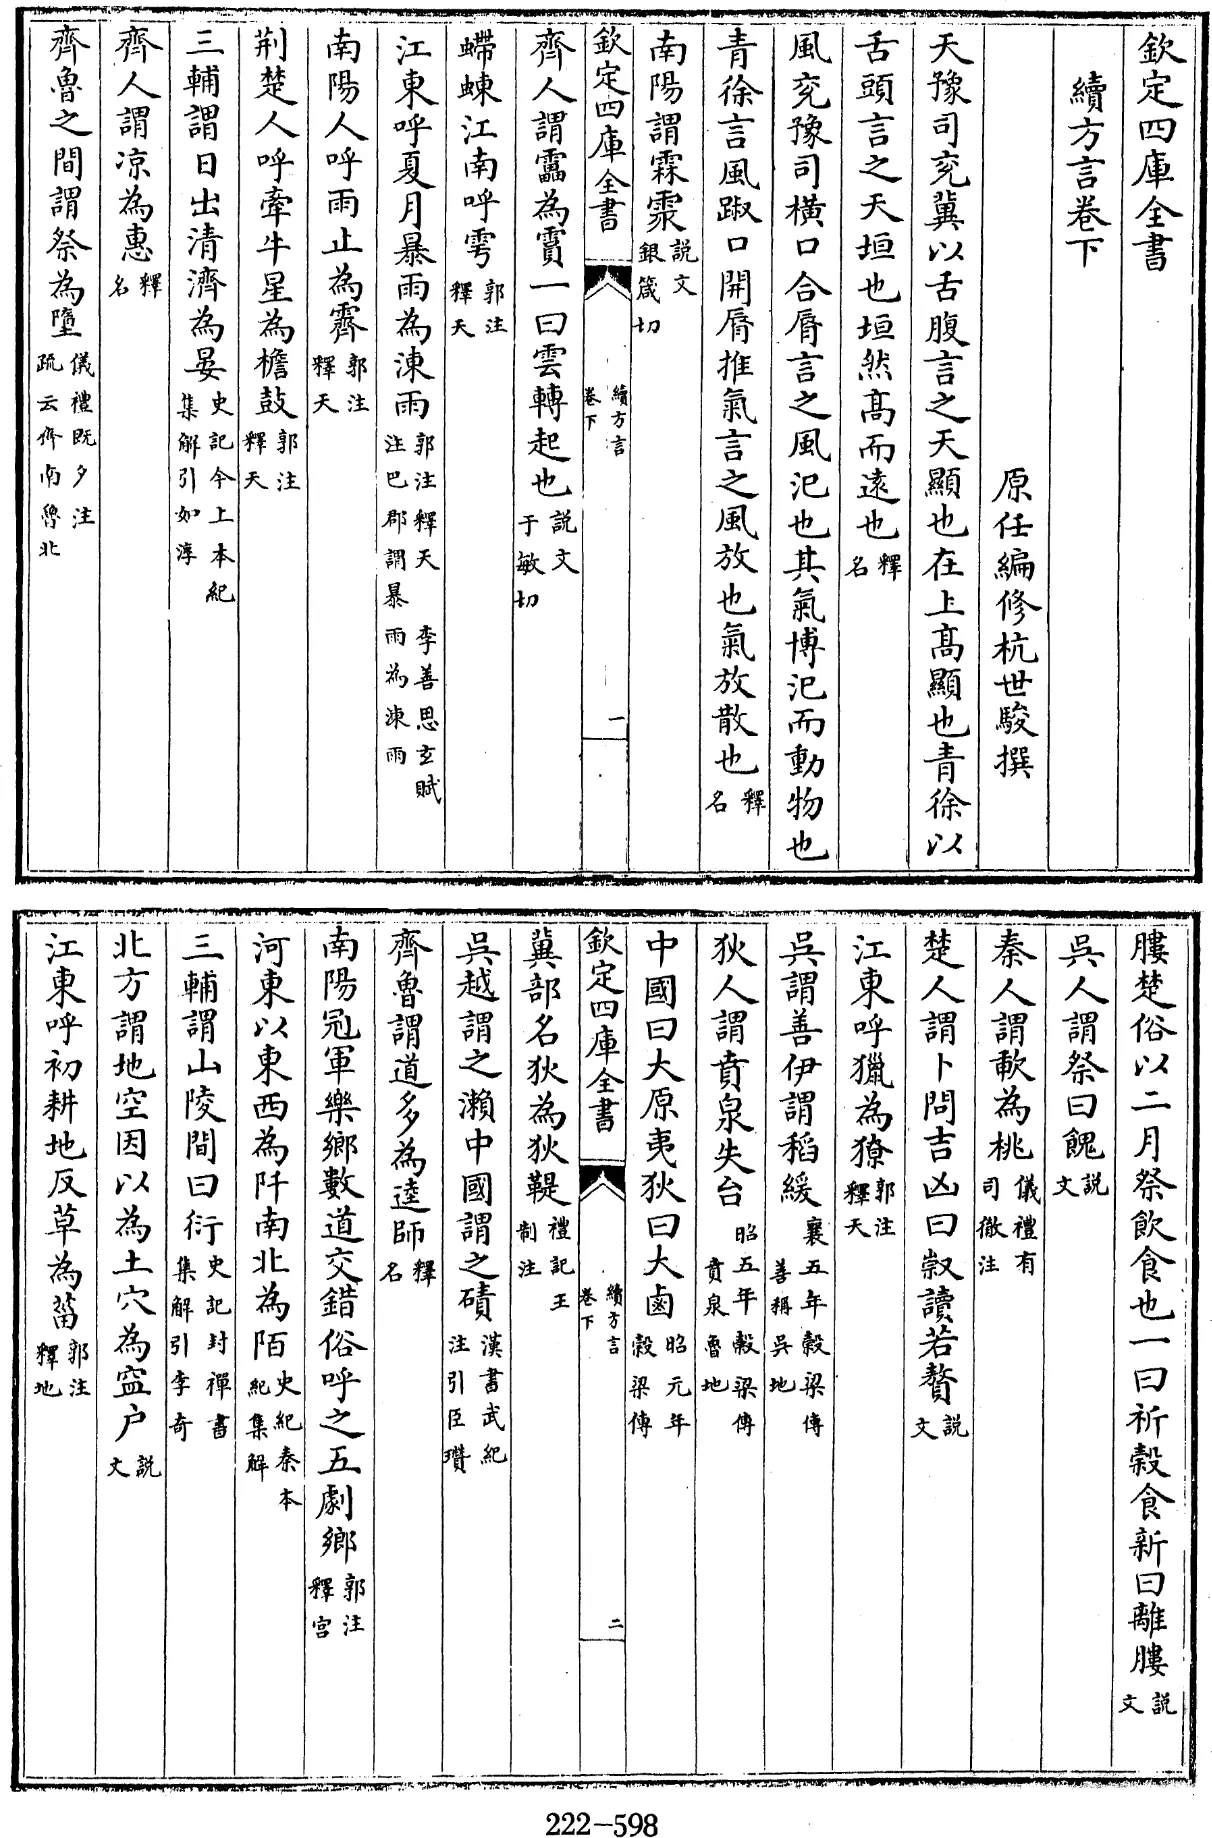 欽定四庫全書
續方言卷下
原任編修杭世駿撰
天豫司兖冀以舌腹言之天顯也在上高顯也青徐以
舌頭言之天垣也垣然高而遠也釋名
風兖豫司橫口合脣言之風汜也其氣博汜而動物也
青徐言風踧口開脣推氣言之風放也氣放散也釋名
南陽謂霖霥說文銀箴切
欽定四庫全書 續方言卷下 一
齊人謂靁為霣一曰雲轉起也說文于敏切
螮蝀江南呼雩郭注釋天
江東呼夏月暴雨為涷雨郭注釋天 李善思玄賦注巴郡謂暴雨為涷雨
南陽人呼雨止為霽郭注釋天
荆楚人呼牽牛星為檐鼓郭注釋天
三輔謂日出清濟為晏史記今上本紀集解引如淳
齊人謂凉為惠釋名
齊魯之間謂祭為墮儀禮既夕注疏云齊南魯北
膢楚俗以二月祭飲食也一曰祈穀食新曰離膢說文
吳人謂祭曰餽說文
秦人謂歃為桃儀禮有司徹注
楚人謂卜問吉凶曰𣪠讀若贅說文
江東呼獵為獠郭注釋天
吳謂善伊謂稻緩襄五年穀梁傳善稱吳地
狄人謂賁泉失台昭五年穀梁傳賁泉魯地
中國曰大原夷狄曰大鹵昭元年穀梁傳
欽定四庫全書 續方言卷下 二
冀部名狄為狄鞮禮記王制注
吳越謂之瀨中國謂之磧漢書武紀注引臣瓚
齊魯謂道多為逵師釋名
南陽冠軍樂鄉數道交錯俗呼之五劇鄉郭注釋宮
河東以東西為阡南北為陌史紀秦本紀集解
三輔謂山陵間曰衍史記封禪書集解引李奇
北方謂地空因以為土穴為盁户說文
江東呼初耕地反草為菑郭注釋地
222-598